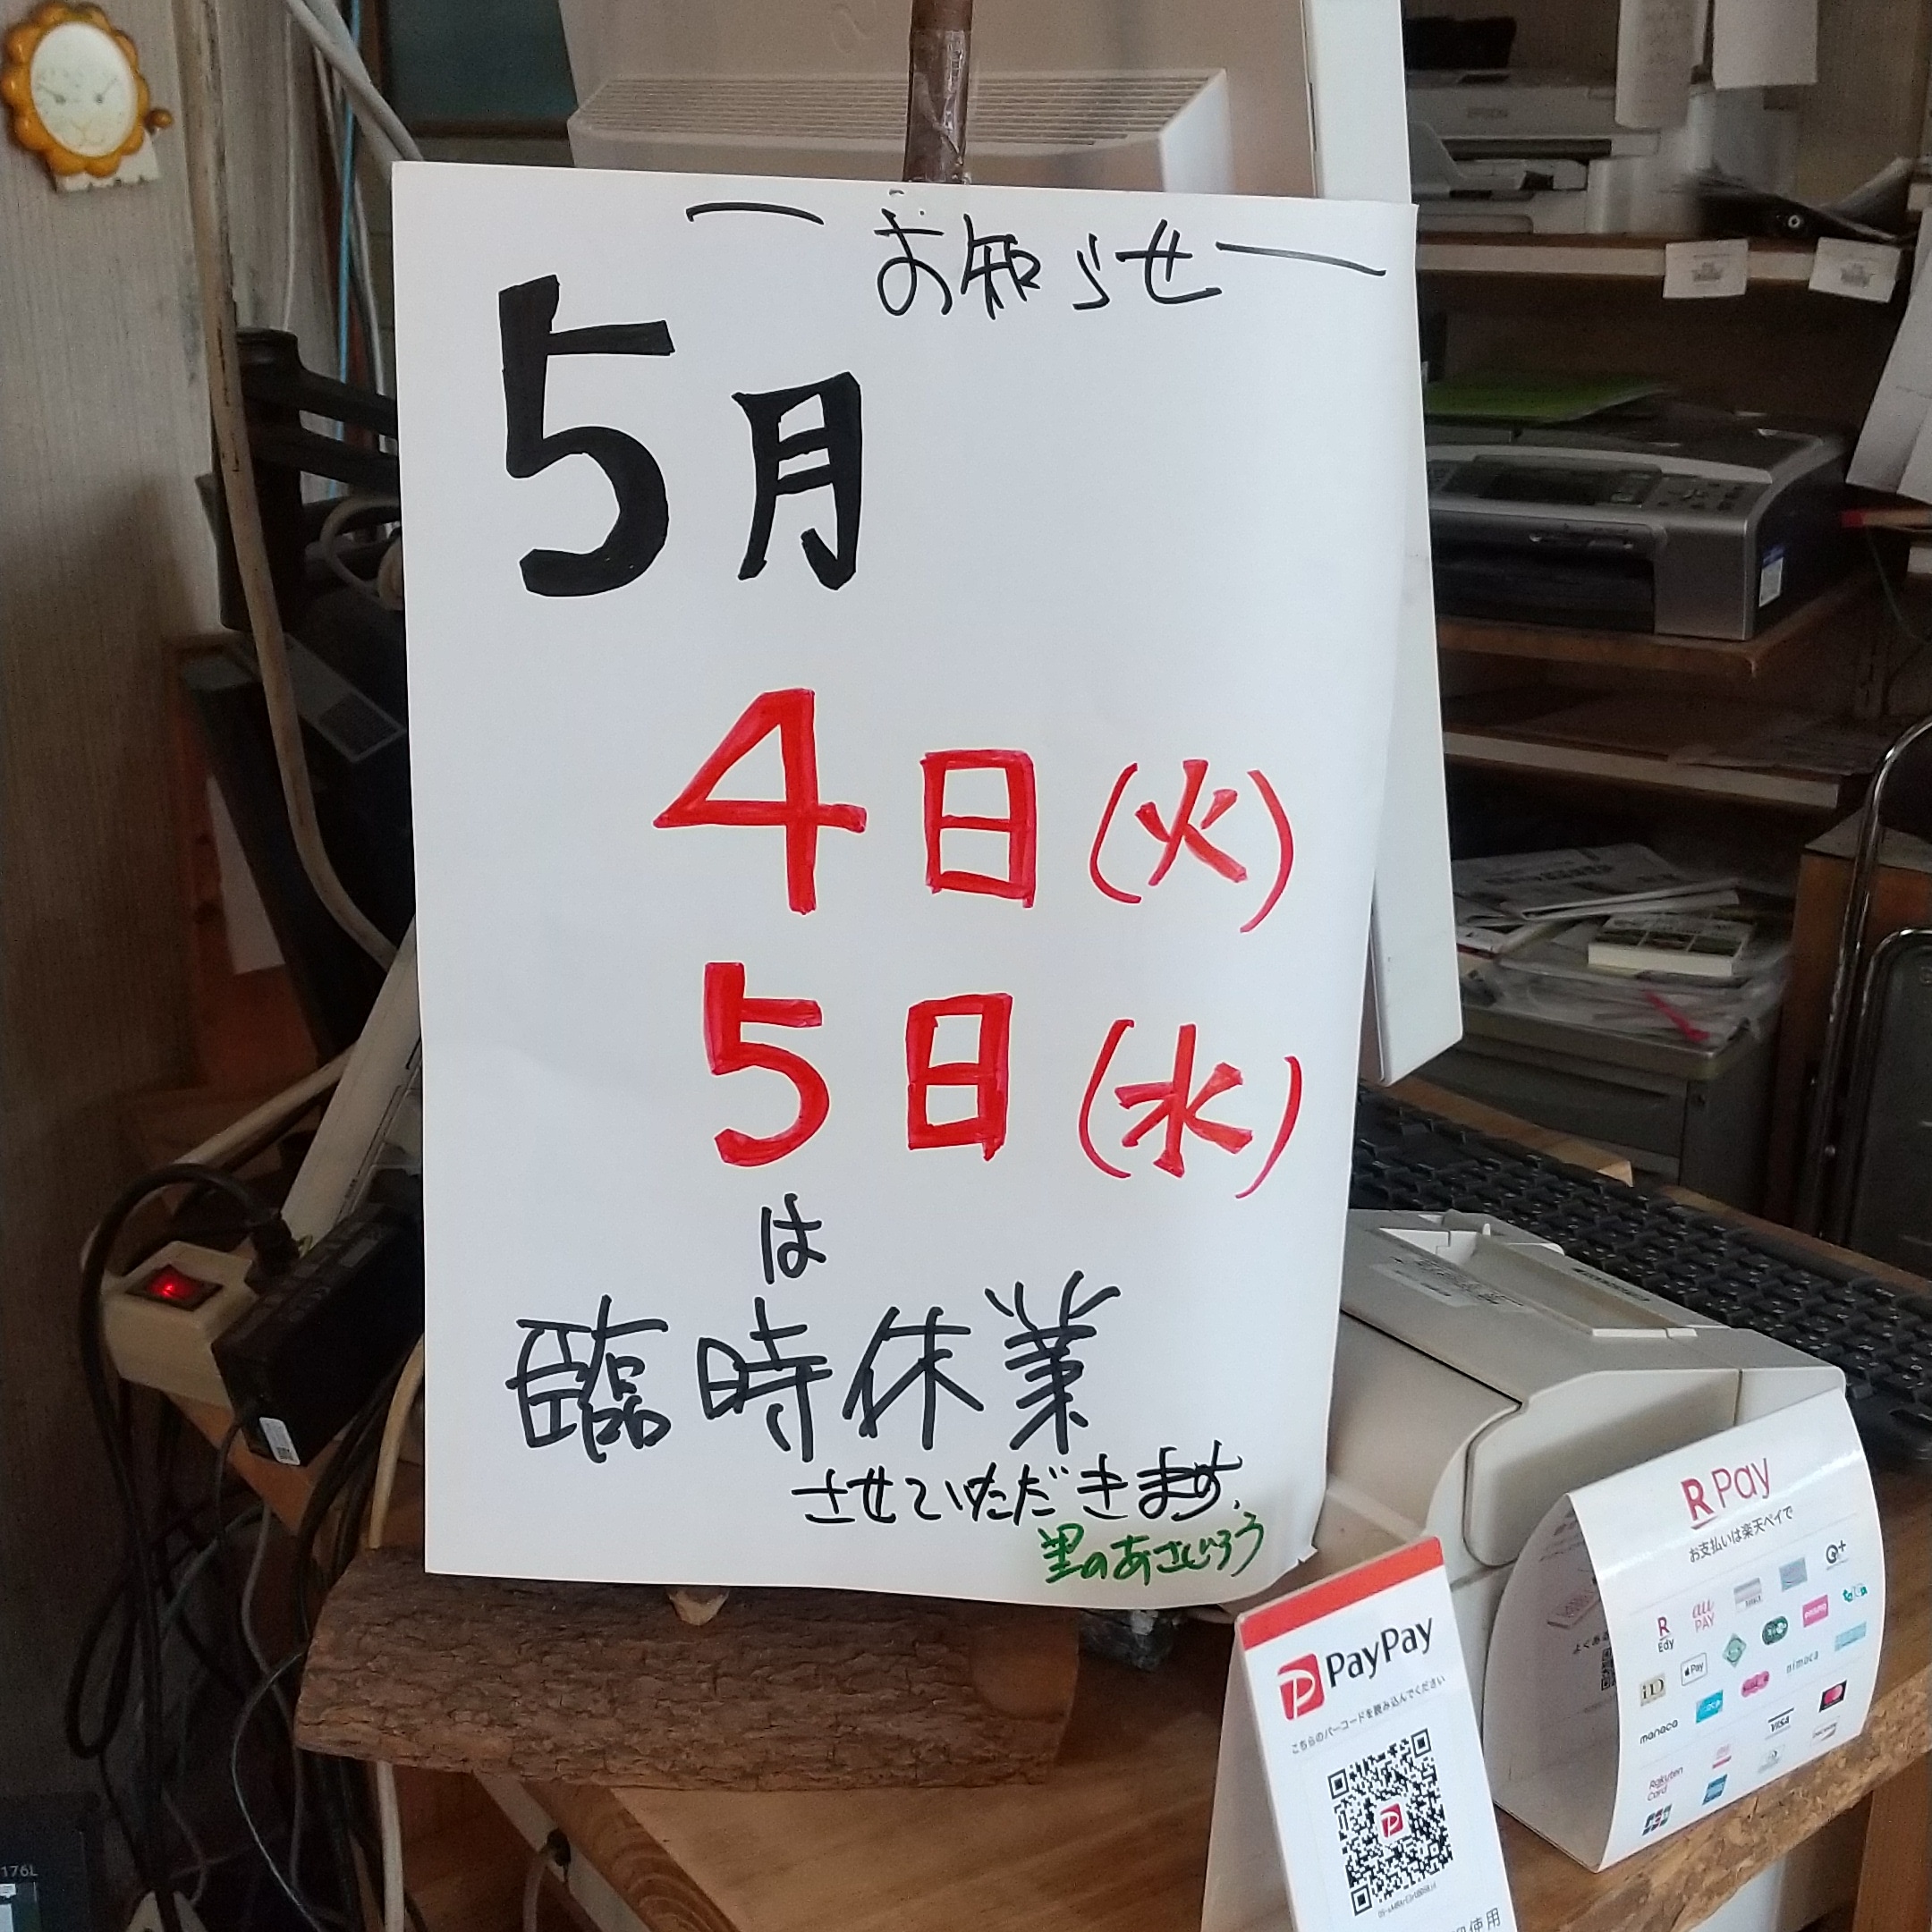 お知らせ
5月
4日(火)
5日(水)
は
臨時休業
させていただきます.
里のあさじろう
EPSON
R Pay
お支払いは楽天ペイで
R Edy
au PAY
iD
Pay
nimoca
manaca
VISA
Rakuten Card
JCB
PayPay
こちらのバーコードを読み込んでください
176L